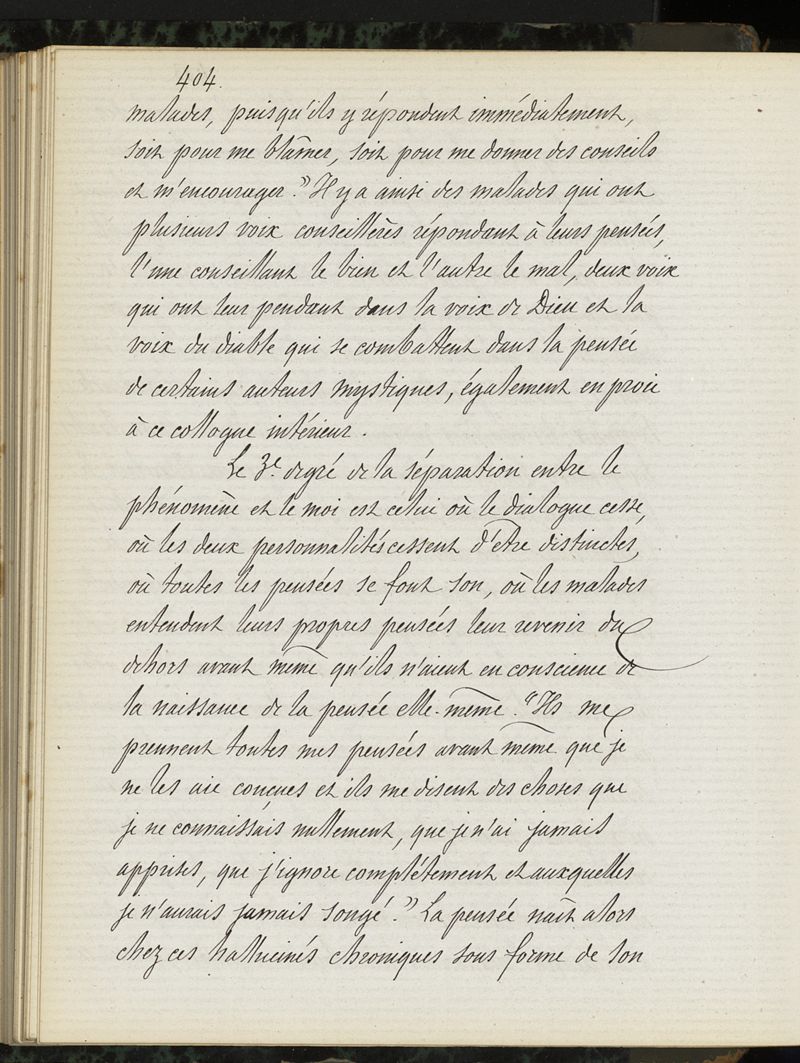 404.
malades, puisqu'ils y répondent immédiatement,
soit pour me blâmer, soit pour me donner des conseils
et m'encourager.” Il y a ainsi des malades qui ont
plusieurs voix conseillères répondant à leurs pensées,
l'une conseillant le bien et l'autre le mal, deux voix
qui ont leur pendant dans la voix de Dieu et la
voix du diable qui se combattent dans la pensée
de certains auteurs mystiques, également en proie
à ce colloque intérieur.
Le 3e. degré de la séparation entre le
phénomène et le moi est celui où le dialogue cesse,
où les deux personnalités cessent d'être distinctes,
où toutes les pensées se font son, où les malades
entendent leurs propres pensées leur revenir du
dehors avant même qu'ils n'aient eu conscience de
la naissance de la pensée elle-même. “Ils me
prennent toutes mes pensées avant même que je
ne les aie conçues et ils me disent des choses que
je ne connaissais nullement, que je n'ai jamais
apprises, que j'ignore complétement et auxquelles
je n'aurais jamais songé.” La pensée naît alors
chez ces hallucinés chroniques sous forme de son